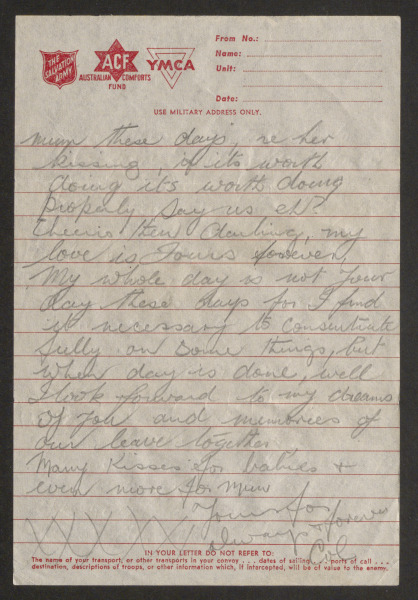 THE SALVATION ARMY
ACF
AUSTRALIAN COMFORTS FUND
YMCA
From No.:
Name:
Unit:
Date:
USE MILITARY ADDRESS ONLY.
mum these days, re her
kissing, if it's worth
doing it's worth doing
properly say us eh?
Cheerio then darling, my
love is yours forever.
My whole day is not your
day these days for I find
it necessary to consentrate
fully on some things, but
when day is done, well
I look forward to my dreams
of you and memories of
our leave together.
Many kisses for babies &
even more for Mum
Yours for
always & forever
XXXX
Col.
IN YOUR LETTER DO NOT REFER TO:
The name of your transport, or other transports in your convoy . . . dates of sailing . . . ports of call . . .
destination, descriptions of troops, or other information which, if intercepted, will be of value to the enemy.